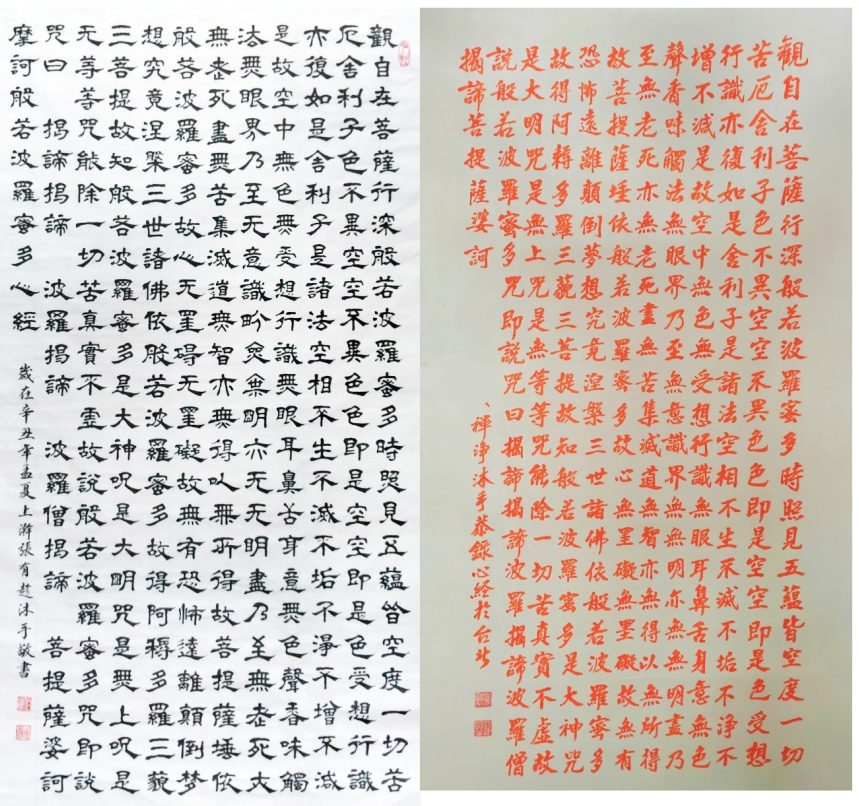 觀自在菩薩行深般若波羅蜜多時照見五蘊皆空度一切苦
厄舍利子色不異空空不異色色即是空空即是色受想行識
亦復如是舍利子是諸法空相不生不滅不垢不淨不增不減
是故空中無色無受想行識無眼耳鼻舌身意無色聲香味觸
法無眼界乃至无意識界無無明亦无无明盡乃至無老死亦
無老死盡無苦集滅道無智亦無得以無所得故菩提薩埵依
般若波羅蜜多故心无罣碍无罣礙故無有恐怖遠離顛倒梦
想究竟涅槃三世諸佛依般若波羅蜜多故得阿耨多羅三藐
三菩提故知般若波羅蜜多是大神呪是大明咒是無上呪是
无等等咒能除一切苦真實不虛故說般若波羅蜜多咒即說
咒曰 揭諦揭諦 波羅揭諦 波羅僧揭諦 菩提薩婆訶
摩訶般若波羅蜜多心經
歲在辛丑年孟夏上澣張有沐手敬書
觀自在菩薩行深般若波羅蜜多時照見五蘊皆空度一切
苦厄舍利子色不異空空不異色色即是空空即是色受想
行識亦復如是舍利子是諸法空相不生不滅不垢不淨不
增不減是故空中無色無受想行識無眼耳鼻舌身意無色
聲香味觸法無眼界乃至無意識界無無明亦無無明盡乃
至無老死亦無老死盡無苦集滅道無智亦無得以無所得
故菩提薩埵依般若波羅蜜多故心無罣礙無罣礙故無有
恐怖遠離顛倒夢想究竟涅槃三世諸佛依般若波羅蜜多
故得阿耨多羅三藐三菩提故知般若波羅蜜多是大神咒
是大明咒是無上咒是無等等咒能除一切苦真實不虛故
說般若波羅蜜多咒即說咒曰揭諦揭諦波羅揭諦波羅僧
揭諦菩提薩婆訶
禪淨沐手恭錄心經於台北